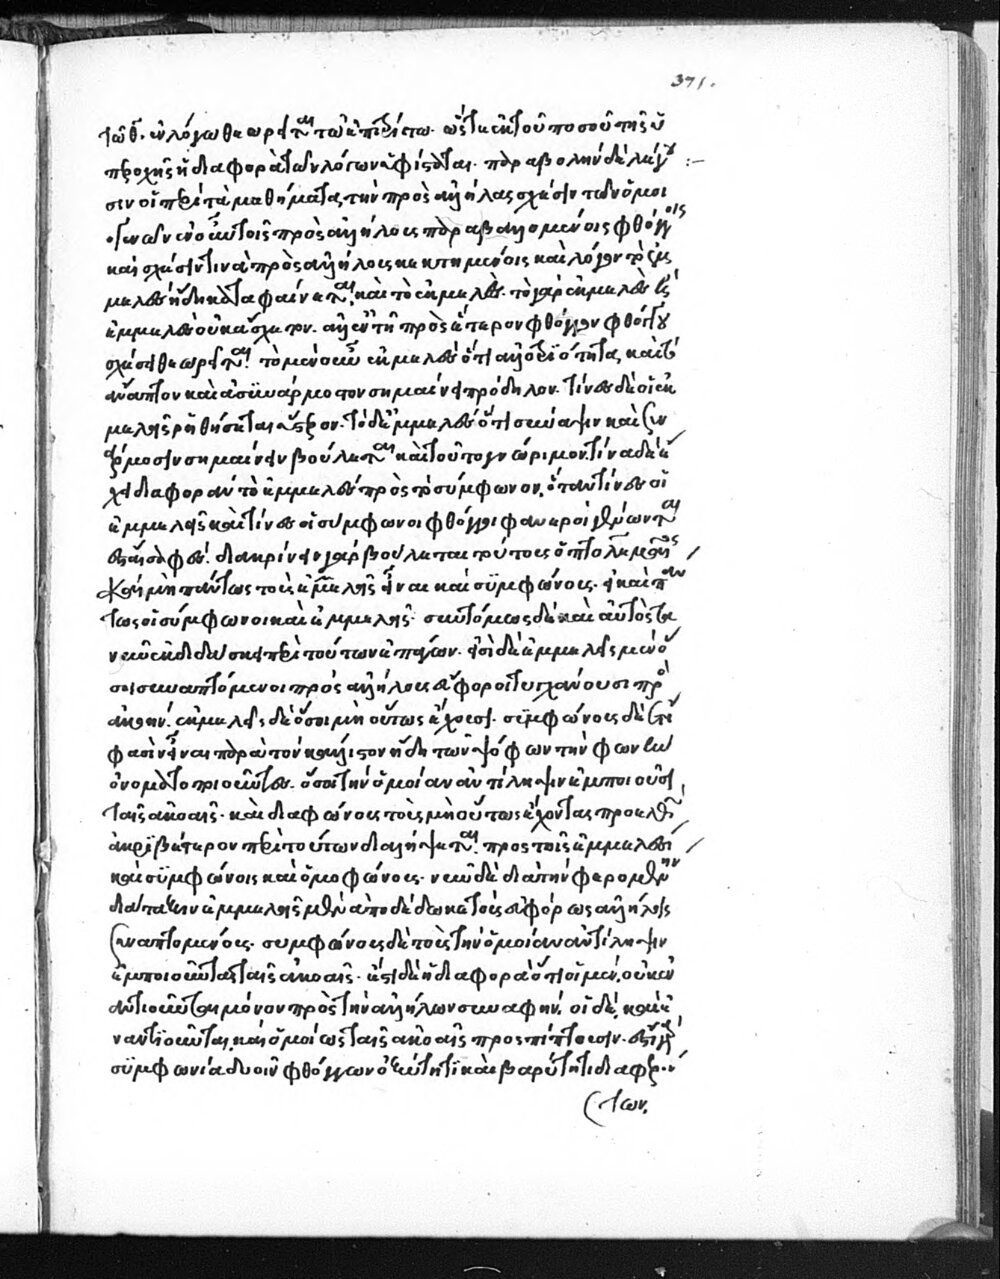 371.
τῶ θ. ἐν λόγω θεωρεῖται τῶ ἐπιτρίτω. ὥστε ἐκ τοῦ ποσοῦ τῆς ὑ
περοχῆς ἡ διαφορὰ τῶν λόγων ὑφίσταται. παραβολὴν δὲ λέγου
σιν οἱ περὶ τὰ μαθήματα, τὴν πρὸς ἀλλήλας σχέσιν τῶν ὁμοι
ογενῶν ἐν οἷς τοῖς πρὸς ἀλλήλους παραβαλλομένοις φθόγγοις
καὶ σχέσιν τινὰ πρὸς ἀλλήλους κεκτημένοις καὶ λόγον τὸ ἐμ
μελὲς ἤδη καταφαίνεται, καὶ τὸ ἐκμελές. τὸ γὰρ ἐκμελὲς
ἐμμελὲς οὐ καθ' ἕκαστον. ἀλλ' ἐν τῆ πρὸς ἕτερον φθόγγον φθόγγου
σχέσει θεωρεῖται. τὸ μὲν οὖν ἐκμελὲς ὅτι
ἀνάπτον καὶ ἀσυνάρμοστον σημαίνει πρόδηλον. τίνες δὲ οἱ ἐκ
μελεῖς ῥηθήσεται ὕστερον. τὸ δὲ ἐμμελὲς ὅτι συνάψιν καὶ συν
άρμοσιν σημαίνειν βούλεται καὶ τοῦτο γνώριμον. τίνα δὲ ἔ
χει διαφορὰν τὸ ἐμμελὲς πρὸς τὸ σύμφωνον, ὅταν τίνες οἱ
ἐμμελεῖς καὶ τίνες οἱ σύμφωνοι φθόγγοι φανεροὶ γένωνται
ἔσται σαφές. διακρίνειν γὰρ βούλεται τούτους ὁ πτολεμαῖος
καὶ μὴ πάντως τοὺς ἐμμελεῖς εἶναι καὶ συμφώνους. εἰ καὶ πάν
τως οἱ σύμφωνοι καὶ ἐμμελεῖς. συντόμως δὲ καὶ αὐτὸς τε
νῦν ἐκδιδάσκει περὶ τούτων ἐπάγων. εἰσὶ δὲ ἐμμελεῖς μὲν ὅ
σοι συναπτόμενοι πρὸς ἀλλήλους εὔφοροι τυγχάνουσι πρὸς
ἀκοήν. ἐκμελεῖς δὲ ὅσοι μὴ οὕτως ἔχουσι. συμφώνους δὲ ἔτι
φασὶν εἶναι παρὰ τὸν κάλλιστον ἤδη τῶν ψόφων τὴν φωνὴν
ὀνοματοποιοῦντες. ὅσοι τὴν ὁμοίαν ἀντίληψιν ἐμποιοῦσι
ταῖς ἀκοαῖς. καὶ διαφώνους τοὺς μὴ οὕτως ἔχοντας προελθὼν
ἀκριβέστερον περὶ τούτων διαλήψεται. πρὸς τοῖς ἐμμελέσι
καὶ συμφώνοις καὶ ὁμοφώνους. νῦν δὲ διὰ τὴν φερομένην
διάταξιν ἐμμελεῖς μὲν ἀποδέδωκε τοὺς εὐφόρως ἀλλήλοις
συναπτομένους. συμφώνους δὲ τοὺς τὴν ὁμοίαν ἀντίληψιν
ἐμποιοῦντας ταῖς ἀκοαῖς. ἔστι δὲ ἡ διαφορὰ ὅτι οἱ μὲν, οὐκ ἐν
αντιοῦνται μόνον πρὸς τὴν ἀλλήλων συναφήν. οἱ δὲ, καὶ
ναντιοῦνται, καὶ ὁμοίως ταῖς ἀκοαῖς προσπίπτουσιν. ἔστι γὰρ
συμφωνία δυοῖν φθόγγων ὀξύτητι καὶ βαρύτητι διαφερόν
των.